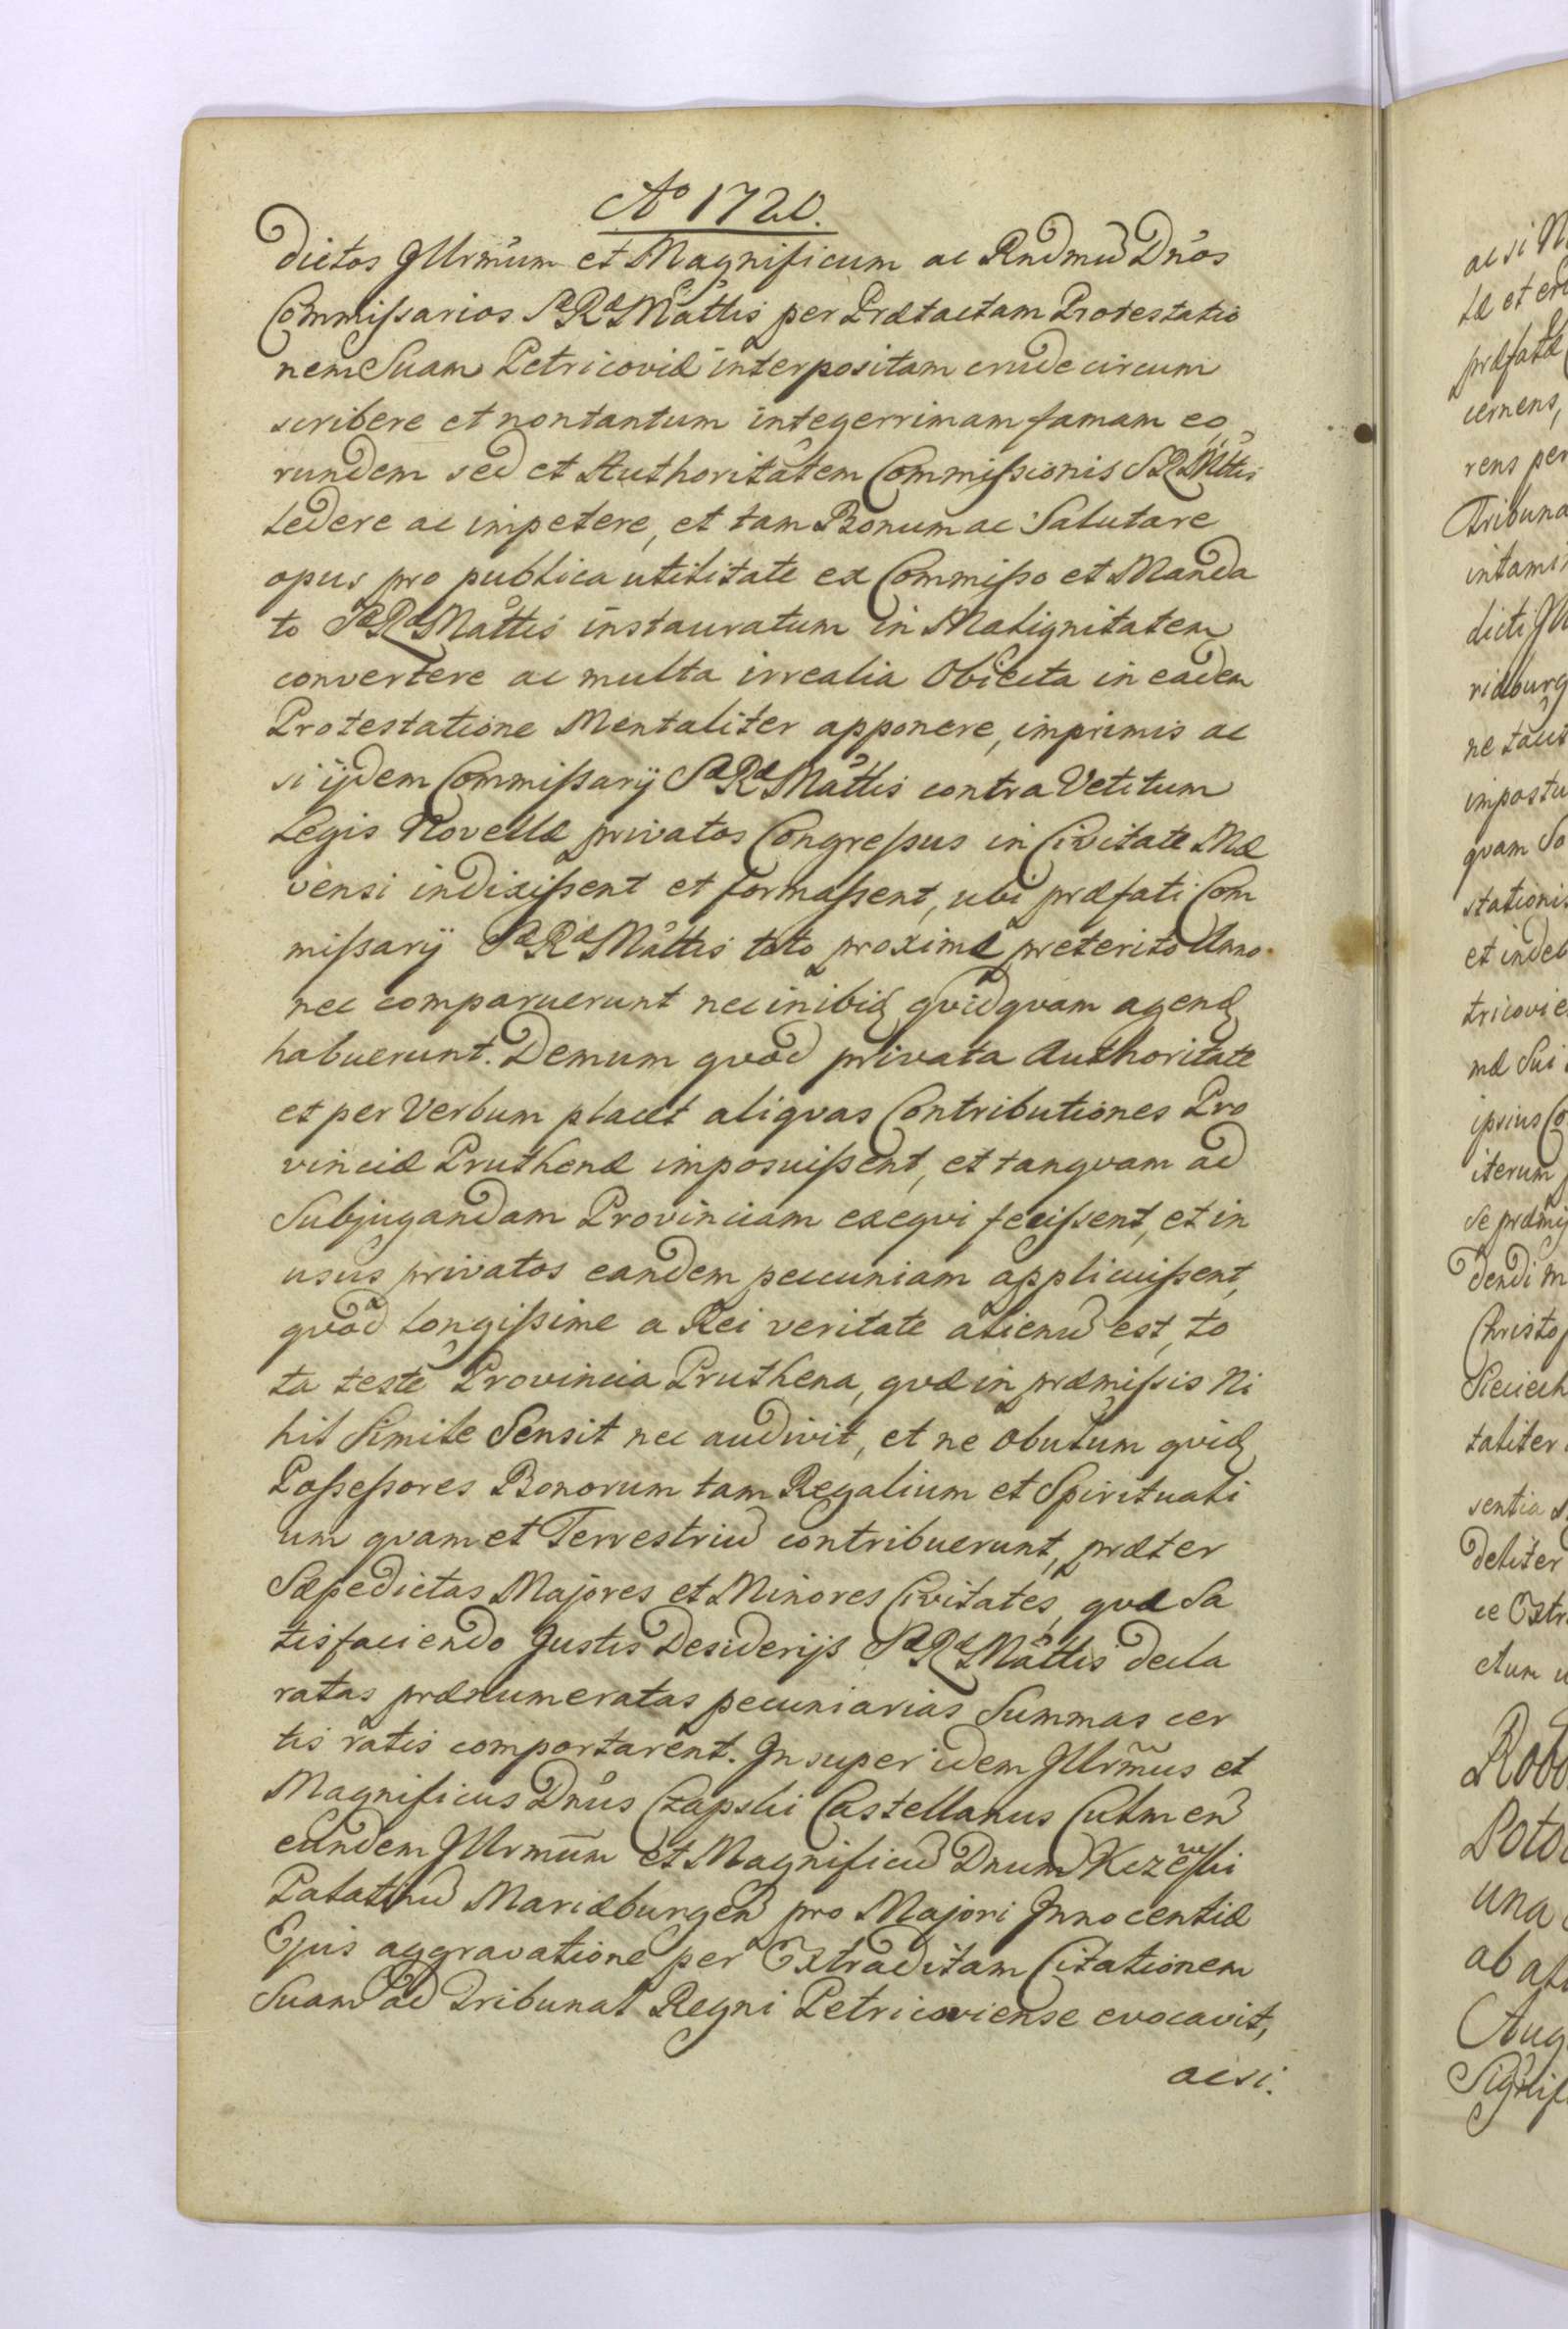 Ao 1720.
dictos Jllrmum et Magnificum ac Rndmū Dnos
Commissarios SæRæMattis per Prætactam Protestatio
nem Suam Petricoviæ interpositam crude circum
scribere et non tantum integerrimam famam eo
rundem sed et Authoritatem Commissionis SRMttis
ledere ac impetere, et tam Bonum ac Salutare
opus pro publica utilitate ex Commisso et Manda
to SæRæMattis instauratum in Malignitatem
convertere ac multa irrealia Obiecta in eadem
Protestatione Mentaliter apponere, imprimis ac
si ijdem Commissarij SæRæMattis contra Vetitum
Legis Novellæ privatos Congressus in Civitate Mæ
vensi indixissent et formassent, ubi præfati Com
missarij SæRæMattis toto proxime preterito Anno
nec comparuerunt nec inibiq quidquam agend
habuerunt. Demum quod privata Authoritate
et per Verbum placet aliquas Contributiones Pro
vinciæ Pruthenæ imposuissent, et tanquam ad
Subjugandam Provinciam exequi fecissent, et in
usus privatos eandem pecuniam applicuissent,
quod longissime a Rei veritate alienū est, to
ta teste Provincia Pruthena, quæ in præmissis Ni
hil Simile Sensit nec audivit, et ne Obulum quid
Possessores Bonorum tam Regalium et Spirituali
um quam et Terrestriū contribuerunt, præter
Sæpedictas Majores et Minores Civitates, quæ Sa
tisfaciendo Justis Desiderijs SæRæMattis decla
ratas prænumeratas pecuniarias Summas cer
tis ratis comportarent. Jnsuper idem Jllrmus et
Magnificus Dnus Czapski Castellanus Culmen
eundem Jllrmum et Magnificū Dnum Kczewski
Palatinū Mariæburgen pro Majori Jnnocentiæ
Ejus aggravatione per Extraditam Citationem
Suam ad Tribunal Regni Petricoviense evocavit,
acsi.
ac si
tæ et
præfatæ
cernens,
rens per
Tribuna
intami
dicti Jll
riæburg
ne
impostu
quam So
stationis
et indeb
tricovie
mæ Sui
ipsius Co
iterum
Se præmi
dendi m
Christo
taliter
sentia
ce Extr
ctum
Potoc
una
ab
Aug
Signif